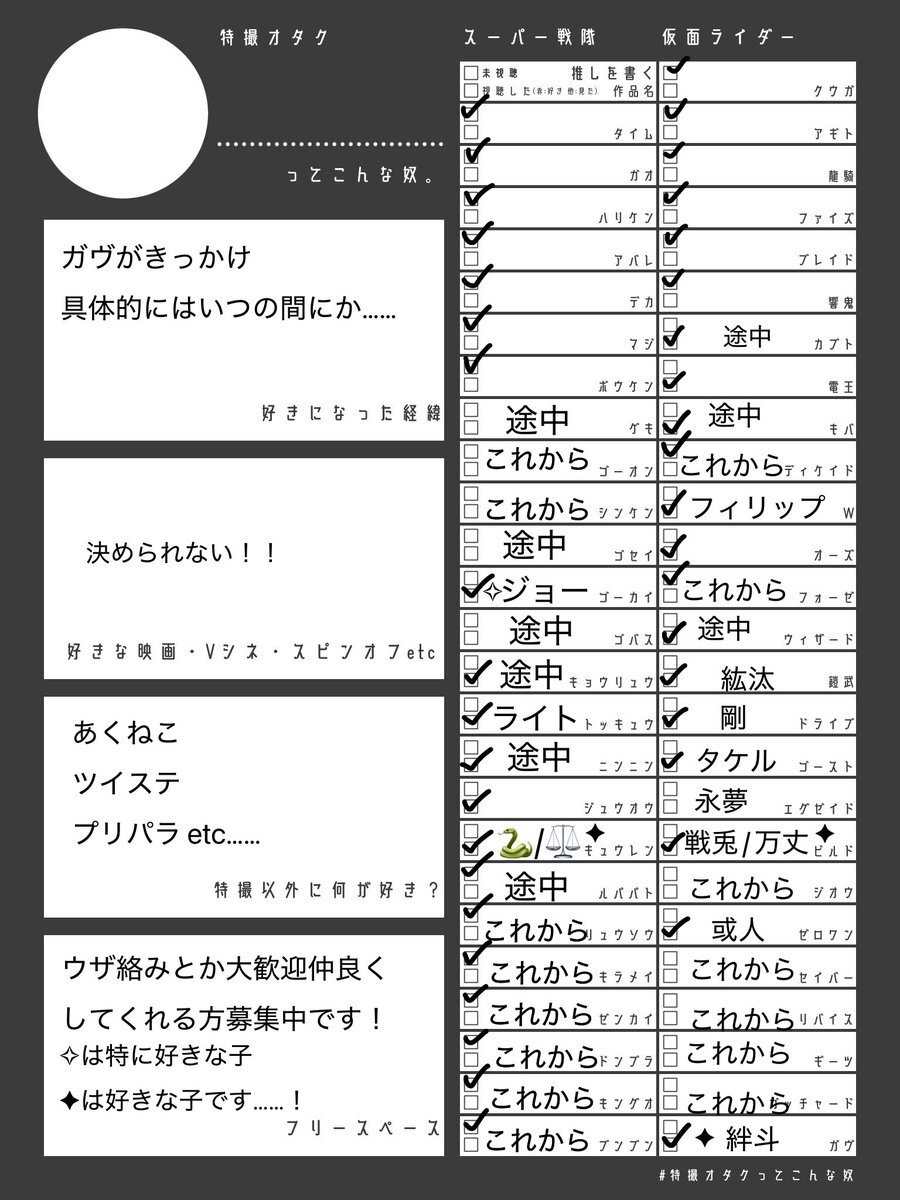 特撮オタク
ってこんな奴。
ガヴがきっかけ
具体的にはいつの間にか……
好きになった経緯
決められない！！
好きな映画・Vシネ・スピンオフetc
あくねこ
ツイステ
プリパラ etc……
特撮以外に何が好き？
ウザ絡みとか大歓迎仲良く
してくれる方募集中です！
✧は特に好きな子
✦は好きな子です……！
フリースペース
スーパー戦隊
未視聴 推しを書く
視聴した(赤:好き 他:見た) 作品名
タイム
ガオ
ハリケン
アバレ
デカ
マジ
ボウケン
途中 ゲキ
これから ゴーオン
これから シンケン
途中 ゴセイ
✧ジョー ゴーカイ
途中 ゴバス
途中 キョウリュウ
ライト トッキュウ
途中 ニンニン
ジュウオウ
🐍/⚖️✦ キュウレン
途中 ルパパト
これから リュウソウ
これから キラメイ
これから ゼンカイ
これから ドンブラ
これから キングオ
これから ブンブン
仮面ライダー
クウガ
アギト
龍騎
ファイズ
ブレイド
響鬼
途中 カブト
電王
途中 キバ
これから ディケイド
フィリップ W
オーズ
これから フォーゼ
途中 ウィザード
紘汰 鎧武
剛 ドライブ
タケル ゴースト
永夢 エグゼイド
戦兎/万丈✦ ビルド
これから ジオウ
或人 ゼロワン
これから セイバー
これから リバイス
これから ギーツ
これから ガッチャード
✦ 絆斗 ガヴ
#特撮オタクってこんな奴